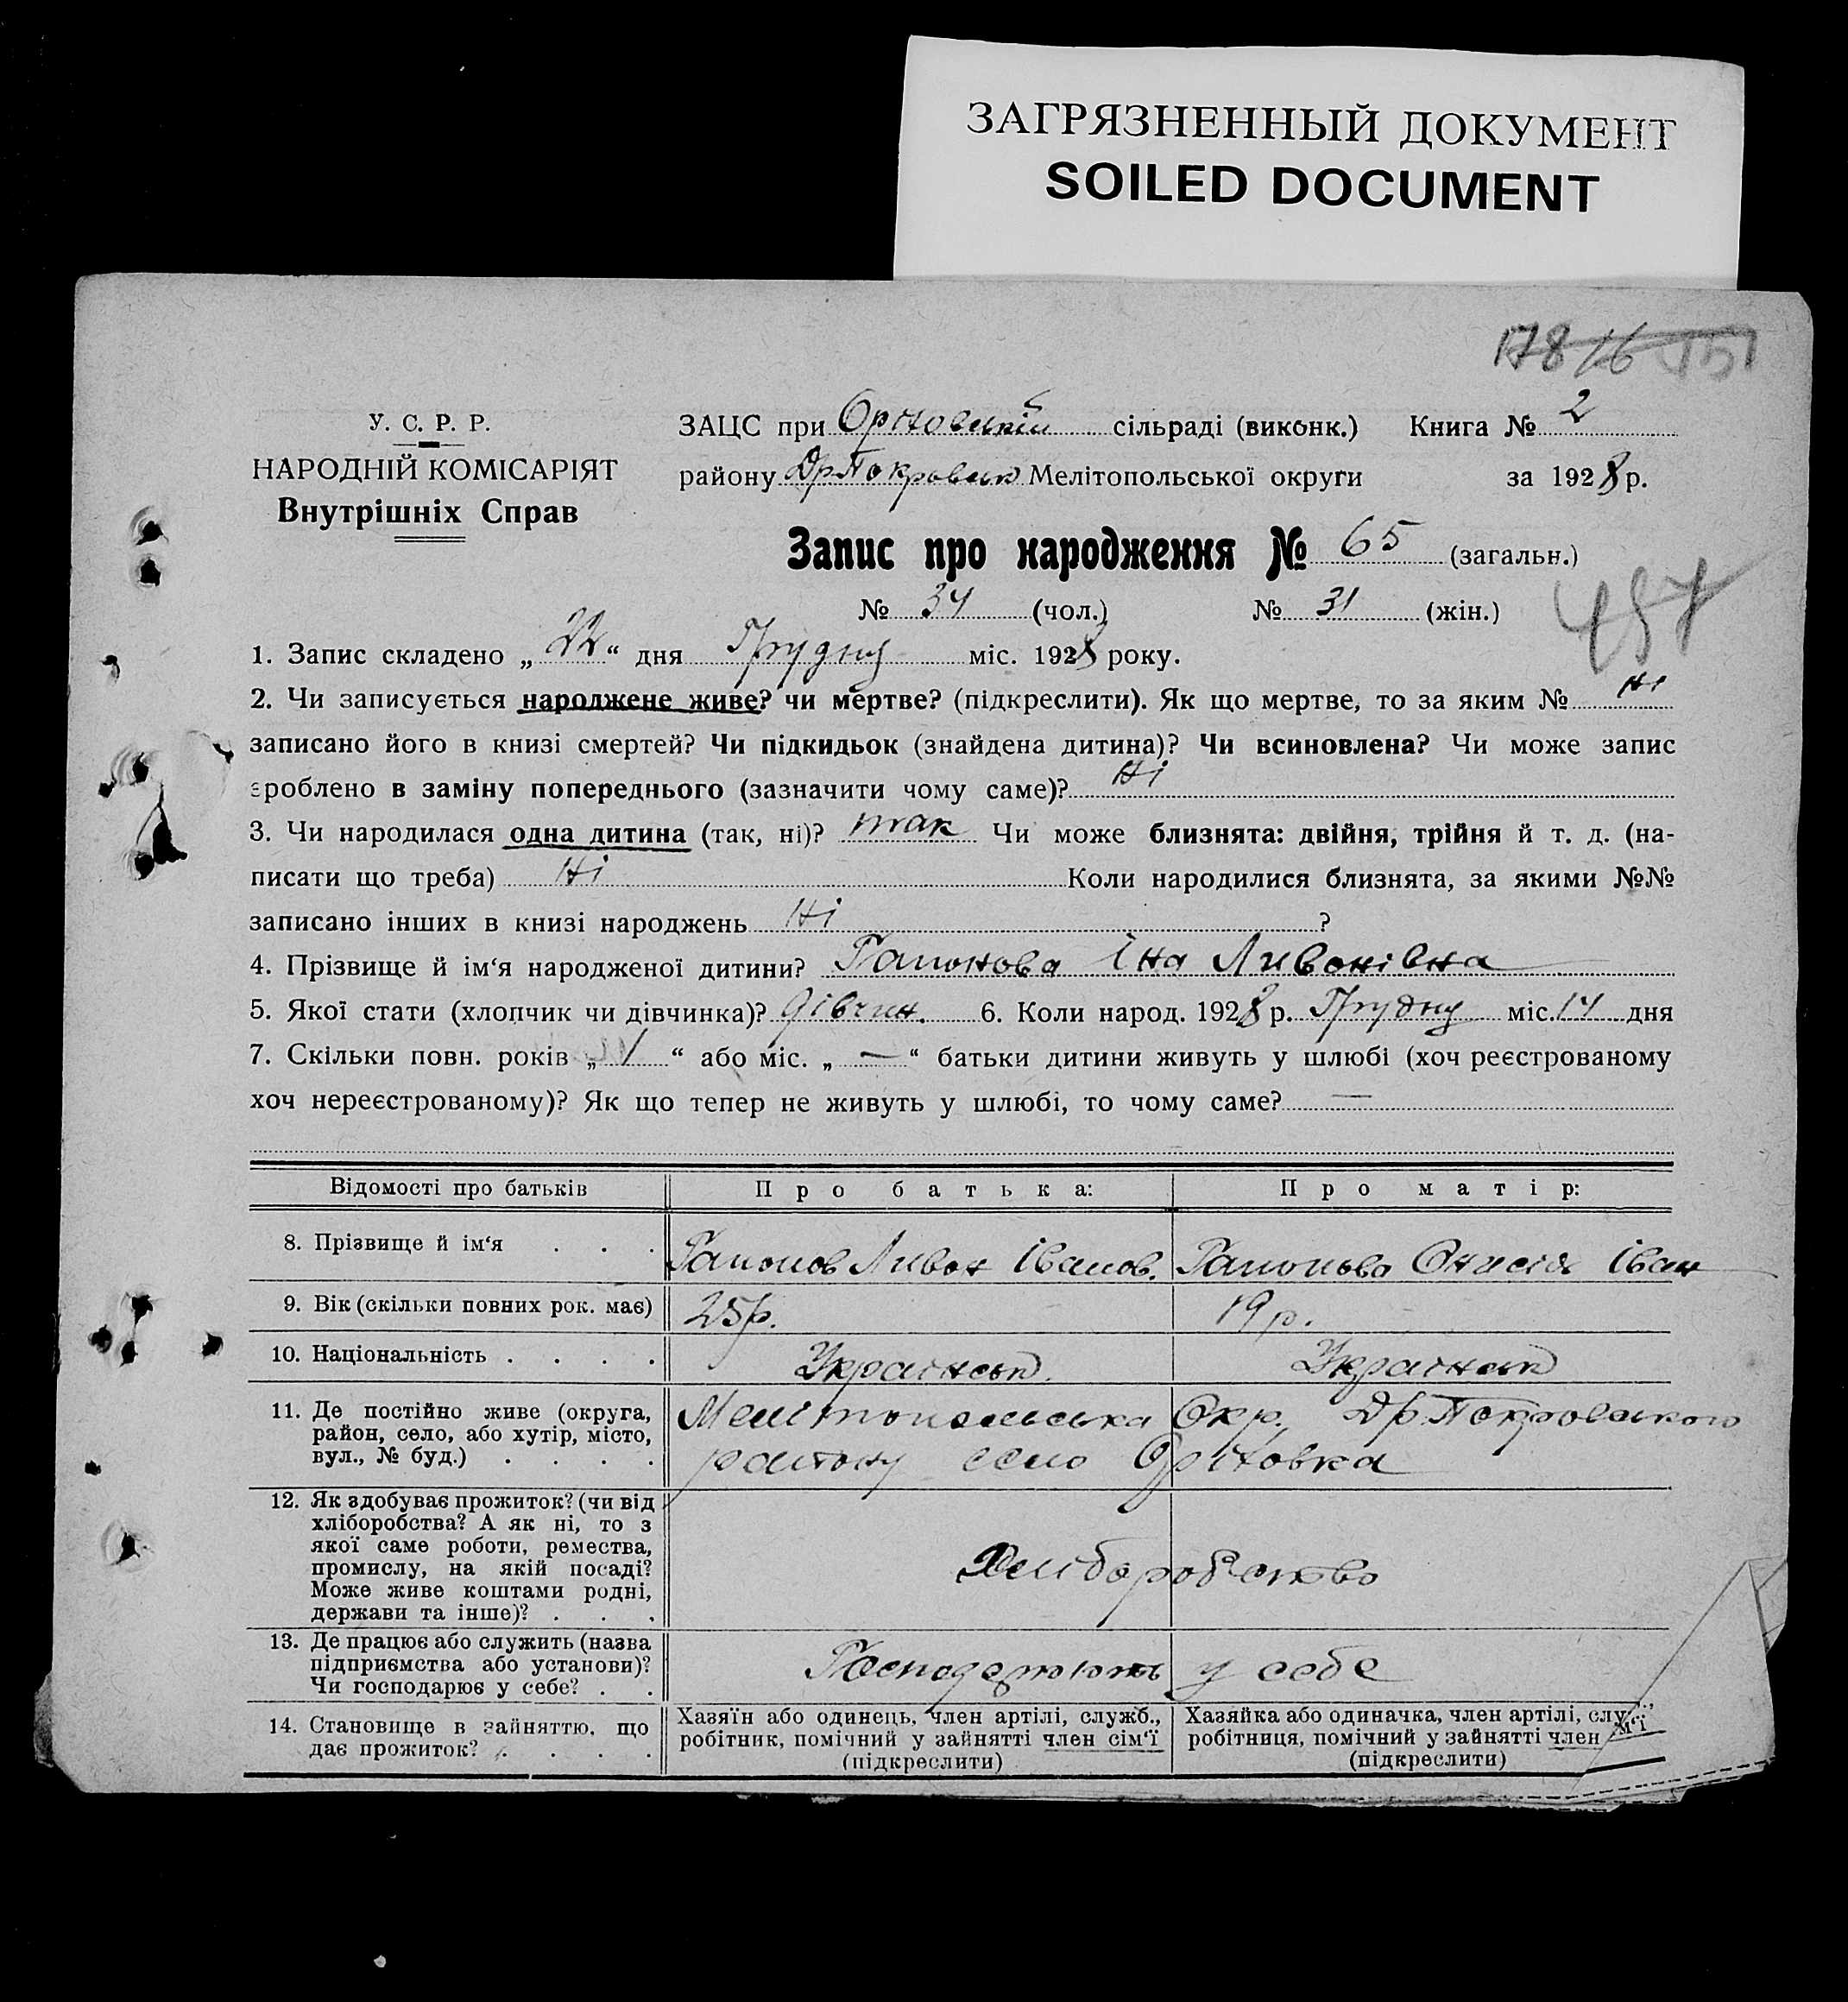 ЗАГРЯЗНЕННЫЙ ДОКУМЕНТ
SOILED DOCUMENT
178
У. С. Р. Р.
НАРОДНІЙ КОМІСАРІЯТ
Внутрішніх Справ
ЗАЦС при сільраді (виконк.) Книга № 2
району Др Покровськ Мелітопольської округи за 1928 р.
Запис про народження № 65 (загальн.)
№ 34 (чол.) № 31 (жін.)
457
1. Запис складено „22“ дня Грудну міс. 1928 року.
2. Чи записується народжене живе? чи мертве? (підкреслити). Як що мертве, то за яким № Ні
записано його в книзі смертей? Чи підкидьок (знайдена дитина)? Чи всиновлена? Чи може запис
зроблено в заміну попереднього (зазначити чому саме)? Ні
3. Чи народилася одна дитина (так, ні)? так Чи може близнята: двійня, трійня й т. д. (на-
писати що треба) Ні Коли народилися близнята, за якими №№
записано інших в книзі народжень Ні ?
4. Прізвище й ім‘я народженої дитини? Гапонова Іна Ливонівна
5. Якої стати (хлопчик чи дівчинка)? дівчин. 6. Коли народ. 1928 р. Грудну міс. 14 дня
7. Скільки повн. років „ 1 “ або міс. „ — “ батьки дитини живуть у шлюбі (хоч реєстрованому
хоч нереєстрованому)? Як що тепер не живуть у шлюбі, то чому саме? —
Відомості про батьків Про батька: Про матір:
8. Прізвище й ім‘я . . . Гапонов Ливон Іванов. Гапонова Іван
9. Вік (скільки повних рок. має) 25 р. 19 р.
10. Національність . . . . Українськ. Українськ
11. Де постійно живе (округа,
район, село, або хутір, місто,
вул., № буд.) . . . .
Мелітопольська Окр. Др. Покровського
району село Оріховка
12. Як здобуває прожиток? (чи від
хліборобства? А як ні, то з
якої саме роботи, ремества,
промислу, на якій посаді?
Може живе коштами родні,
держави та інше)? . . .
Хліборобство
13. Де працює або служить (назва
підприємства або установи)?
Чи господарює у себе? . .
у себе
14. Становище в зайняттю, що
дає прожиток? . . . .
Хазяїн або одинець, член артілі, служб.,
робітник, помічний у зайнятті член сім‘ї
(підкреслити)
Хазяйка або одиначка, член артілі, служ
робітниця, помічний у зайнятті член м‘ї
(підкреслити)